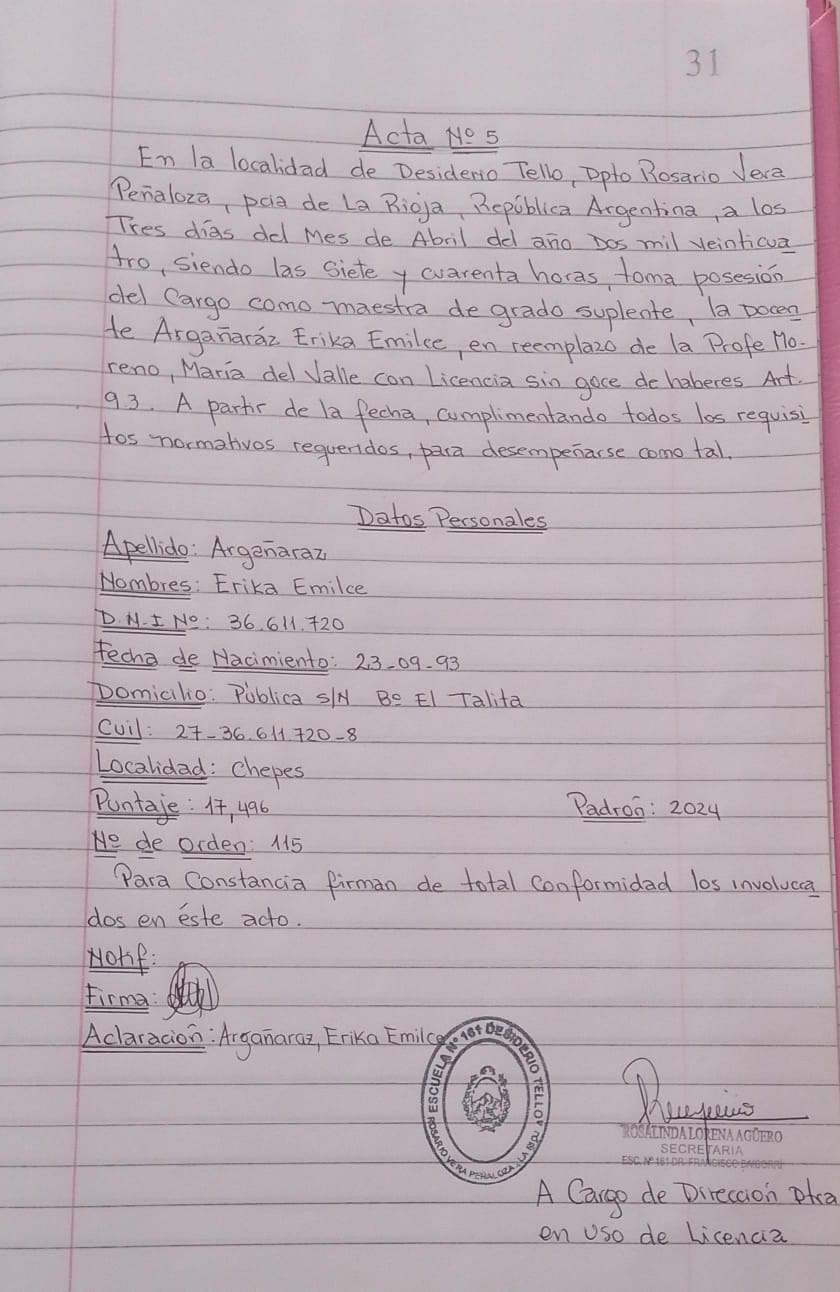 31
Acta Nº 5
En la localidad de Desiderio Tello, Dpto Rosario Vera
Peñaloza, pcia de La Rioja, República Argentina, a los
Tres días del Mes de Abril del año Dos mil veinticua
tro, siendo las siete y cuarenta horas, toma posesión
del Cargo como maestra de grado suplente, la Docen
te Argañaráz Erika Emilce, en reemplazo de la Profe Mo-
reno, María del Valle con Licencia sin goce de haberes Art.
93. A partir de la fecha, cumplimentando todos los requisi
tos normativos requeridos, para desempeñarse como tal.
Datos Personales
Apellido: Argañaraz
Nombres: Erika Emilce
D.N.I Nº: 36.611.720
Fecha de Nacimiento: 23-09-93
Domicilio: Pública S/N Bº El Talita
Cuil: 27-36.611.720-8
Localidad: Chepes
Puntaje: 17,496 Padrón: 2024
Nº de Orden: 115
Para Constancia firman de total conformidad los involucra
dos en éste acto.
Notif:
Firma:
Aclaración: Argañaraz, Erika Emilce
ESCUELA Nº 161 DESIDERIO TELLO
ROSARIO VERA PEÑALOZA
ROSALINDA LORENA AGÜERO
SECRETARIA
ESC. Nº 161 DR. FRANCISCO
A Cargo de Dirección Dtra
en uso de Licencia